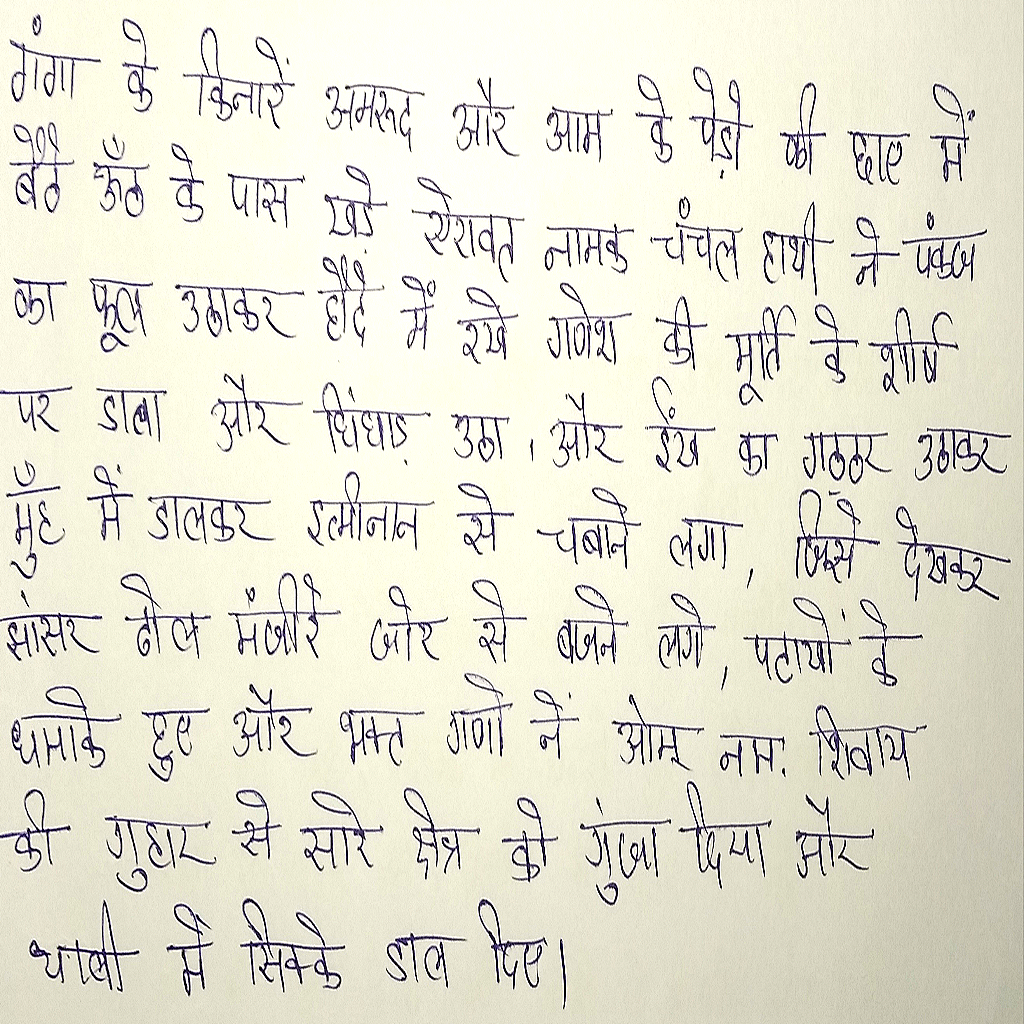 गंगा के किनारे अमरूद और आम के पेड़ो की छाए में
बैठे ऊँठ के पास खड़े ऐरावत नामक चंचल हाथी ने पंकज
का फूल उठाकर हौदे में रखे गणेश की मूर्ति के शीर्ष
पर डाला और चिंघाड़ उठा, और ईख का गठ्ठर उठाकर
मुँह में डालकर इत्मीनान से चबाने लगा, जिसे देखकर
झांसर ढोल मंजीरे जोर से बजने लगे, पटाखों के
धमाके हुए और भक्त गणो नें ओम नमः शिवाय
की गुहार से सारे क्षेत्र को गुंजा दिया और
थाली में सिक्के डाल दिए।